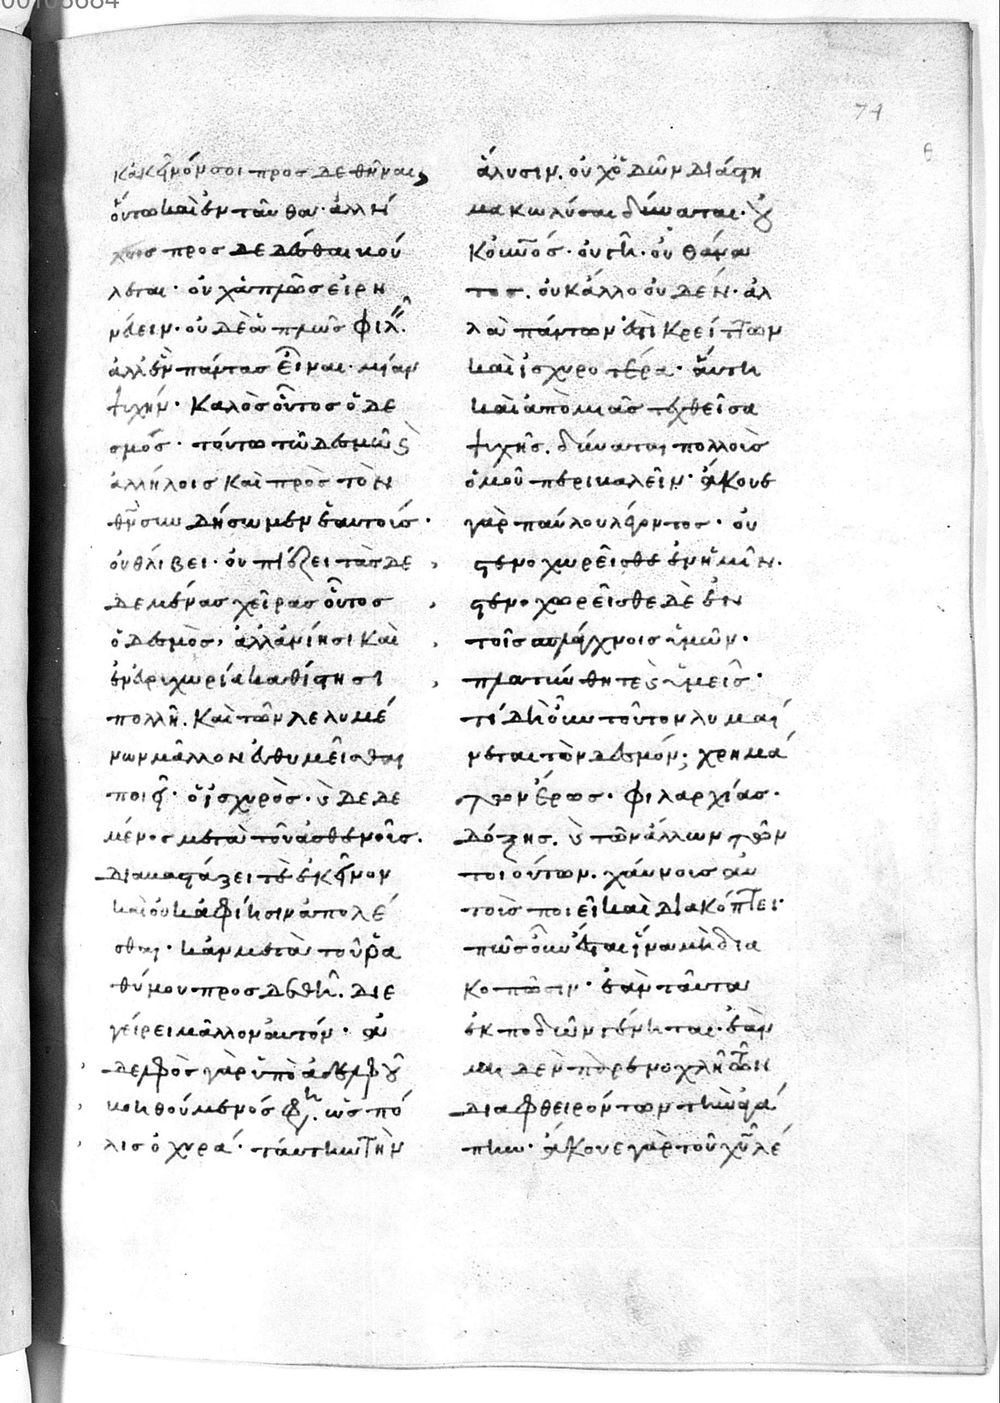 74
θ
κἀκεῖνόν σοι προσδεθῆναι,
οὕτω καὶ ἐνταῦθα· ἀλλή
λοις προσδεδέσθαι βού
λεται· οὐχ ἁπλῶς εἰρη
νεύειν· οὐδὲ ἁπλῶς φιλεῖν·
ἀλλ' ἐν πάντας εἶναι· μίαν
ψυχήν· καλὸς οὗτος ὁ δε
σμός· τούτω τῶ δεσμῶ καὶ
ἀλλήλοις καὶ πρὸς τὸν
θεὸν συνδήσωμεν ἑαυτούς·
οὐ θλίβει· οὐ πιέζει τὰς δε
δεμένας χεῖρας οὗτος
ὁ δεσμὸς, ἀλλ' ἀνίησι καὶ
ἐν εὐρυχωρία καθίστησι
πολλῆ. καὶ τῶν λελυμέ
νων μᾶλλον εὐθυμεῖσθαι
ποιεῖ· ὁ ἰσχυρὸς· καὶ δεδε
μένος μετὰ τοῦ ἀσθενοῦς·
διαβαστάζει τὲ ἐκεῖνον
καὶ οὐκ ἀφίησιν ἀπολέ
σθαι· κἂν μετὰ τοῦ ῥα
θύμου προσδεθῆ. διε
γείρει μᾶλλον αὐτόν· ἀ
δελφὸς γὰρ ὑπὸ ἀδελφοῦ
βοηθούμενός φησιν ὡς πό
λις ὀχυρά· ταύτην τὴν
ἅλυσιν. οὐχ ὁδῶν διάστη
μα κωλύσαι δύναται· οὐ
κ οὐνὸς· οὐ γῆ· οὐ θάνα
τος. οὐκ ἄλλο οὐδέν· ἀλ
λὰ πάντων ἐστὶ κρείττων
καὶ ἰσχυροτέρα· αὕτη
κἂν ἀπὸ μιᾶς τεχθεῖσα
ψυχῆς. δύναται πολλοὺς
ὁμοῦ περιβαλεῖν· ἄκουε
γὰρ παύλου λέγοντος· οὐ
στενοχωρεῖσθε ἐν ἡμῖν.
στενοχωρεῖσθε δὲ ἐν
τοῖς σπλάγχνοις ὑμῶν·
πλατύνθητε καὶ ὑμεῖς·
τί δὴ οὖν τοῦτον λυμαί
νεται τὸν δεσμόν; χρημά
των ἔρως· φιλαρχίας·
δόξης. καὶ τῶν ἄλλων τῶν
τοιούτων. χαύνους αὐ
τοὺς ποιεῖ καὶ διακόπτει·
πῶς οὖν ἔσται ἵνα μὴ δια
κοπῶσιν· ἐὰν ταῦτα
ἐκποδὼν γένηται· ἐὰν
μηδὲν παρενοχλῆ τῶν
διαφθειρόντων τὴν ἀγά
πην· ἄκουε γὰρ τοῦ χριστοῦ λέ